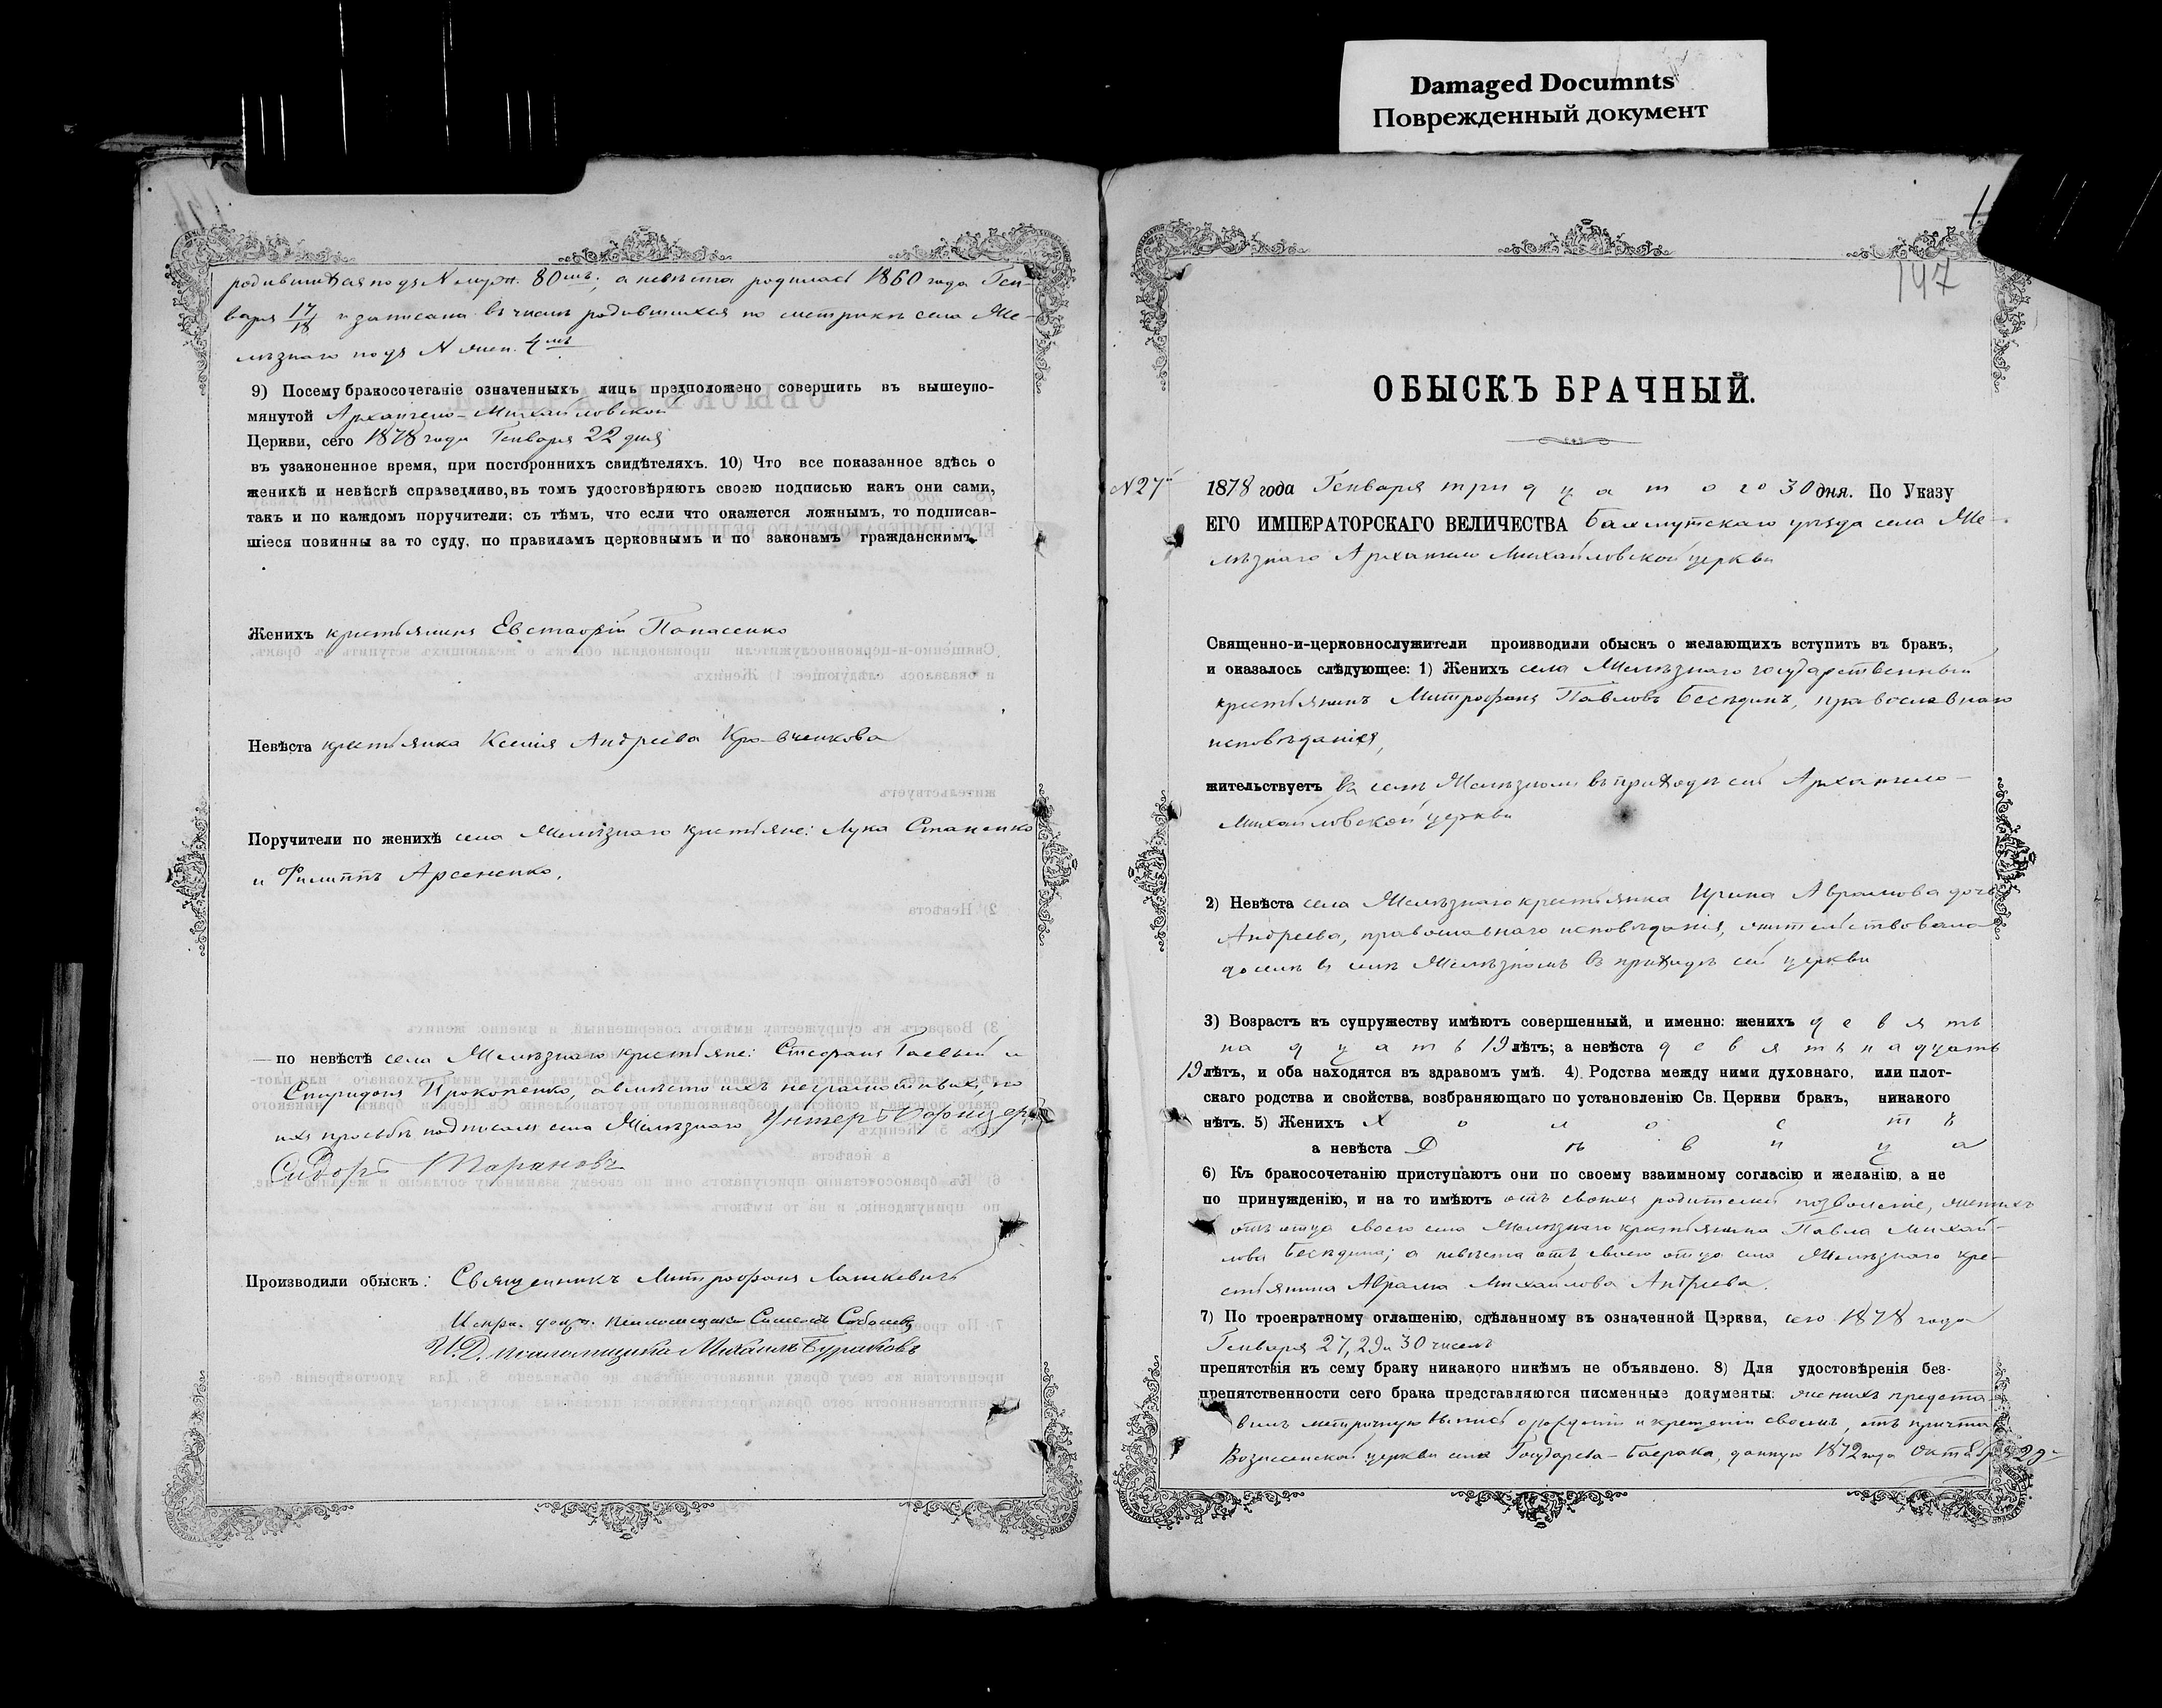 Damaged Documnts
Поврежденный документ
родившихся подъ N муж. 80мъ; а невѣста родилась 1860 года Ген-
варя 17/18 и записана въ числѣ родившихся по метрикѣ села Же-
лѣзнаго подъ N жен. 4мъ
9) Посему бракосочетаніе означенныхъ лицъ предположено совершить въ вышеупо-
мянутой Архангело-Михайловской
Церкви, сего 1878 года Генваря 22 дня
въ узаконенное время, при постороннихъ свидѣтеляхъ. 10) Что все показанное здѣсь о
женихѣ и невѣстѣ справедливо, въ томъ удостовѣряютъ своею подписью какъ они сами,
такъ и по каждомъ поручители; съ тѣмъ, что если что окажется ложнымъ, то подписав-
шіеся повинны за то суду, по правиламъ церковнымъ и по законамъ гражданскимъ.
Женихъ крестьянинъ Евстафій Панасенко
Невѣста крестьянка Ксенія Андреева Кравченкова
Поручители по женихѣ села Желѣзнаго крестьяне: Лука Стаценко
и Филиппъ Арсененко,
— по невѣстѣ села Желѣзнаго крестьяне: Стефанъ Гаевый и
Спиридонъ Прокопенко, а вмѣсто ихъ неграмотныхъ, по
ихъ просьбѣ подписалъ села Желѣзнаго Унтеръ Офицеръ
Сидоръ Тарановъ
Производили обыскъ: Священникъ Митрофанъ Лашкевичъ
Испр. долж. псаломщика Симеонъ Соболевъ
И.Д. псаломщика Михаилъ Бураковъ
147
ОБЫСКЪ БРАЧНЫЙ.
N 27й
1878 года Генваря тридцатого 30 дня. По Указу
ЕГО ИМПЕРАТОРСКАГО ВЕЛИЧЕСТВА Бахмутскаго уѣзда села Же-
лѣзнаго Архангело Михайловской церкви
Священно-и-церковнослужители производили обыскъ о желающихъ вступить въ бракъ,
и оказалось слѣдующее: 1) Женихъ села Желѣзнаго государственный
крестьянинъ Митрофанъ Павловъ Бесѣдинъ, православнаго
исповѣданія,
жительствуетъ въ селѣ Желѣзномъ въ приходѣ сей Архангело-
Михайловской церкви
2) Невѣста села Желѣзнаго крестьянка Ирина Аврамова дочь
Андреева, православнаго исповѣданія, жительствовала
доселѣ въ селѣ Желѣзномъ въ приходѣ сей церкви
3) Возрастъ къ супружеству имѣютъ совершенный, и именно: женихъ девять
надцать 19 лѣтъ; а невѣста девятьнадцать
19 лѣтъ, и оба находятся въ здравомъ умѣ. 4) Родства между ними духовнаго, или плот-
скаго родства и свойства, возбраняющаго по установленію Св. Церкви бракъ, никакого
нѣтъ. 5) Женихъ Холостъ
а невѣста Дѣвица
6) Къ бракосочетанію приступаютъ они по своему взаимному согласію и желанію, а не
по принужденію, и на то имѣютъ отъ своихъ родителей позволеніе, женихъ
отъ отца своего села Желѣзнаго крестьянина Павла Михай-
лова Бесѣдина; а невѣста отъ своего отца села Желѣзнаго кре-
стьянина Аврама Михайлова Андреева.
7) По троекратному оглашенію, сдѣланному въ означенной Церкви, сего 1878 года
Генваря 27, 29 и 30 чиселъ
препятствія къ сему браку никакого никѣмъ не объявлено. 8) Для удостовѣренія без-
препятственности сего брака представляются писменные документы: женихъ предста-
вилъ метричную выпись о рожденіи и крещеніи своемъ, отъ причта
Вознесенской церкви села Государева-Баерака, данную 1872 года Октября 29